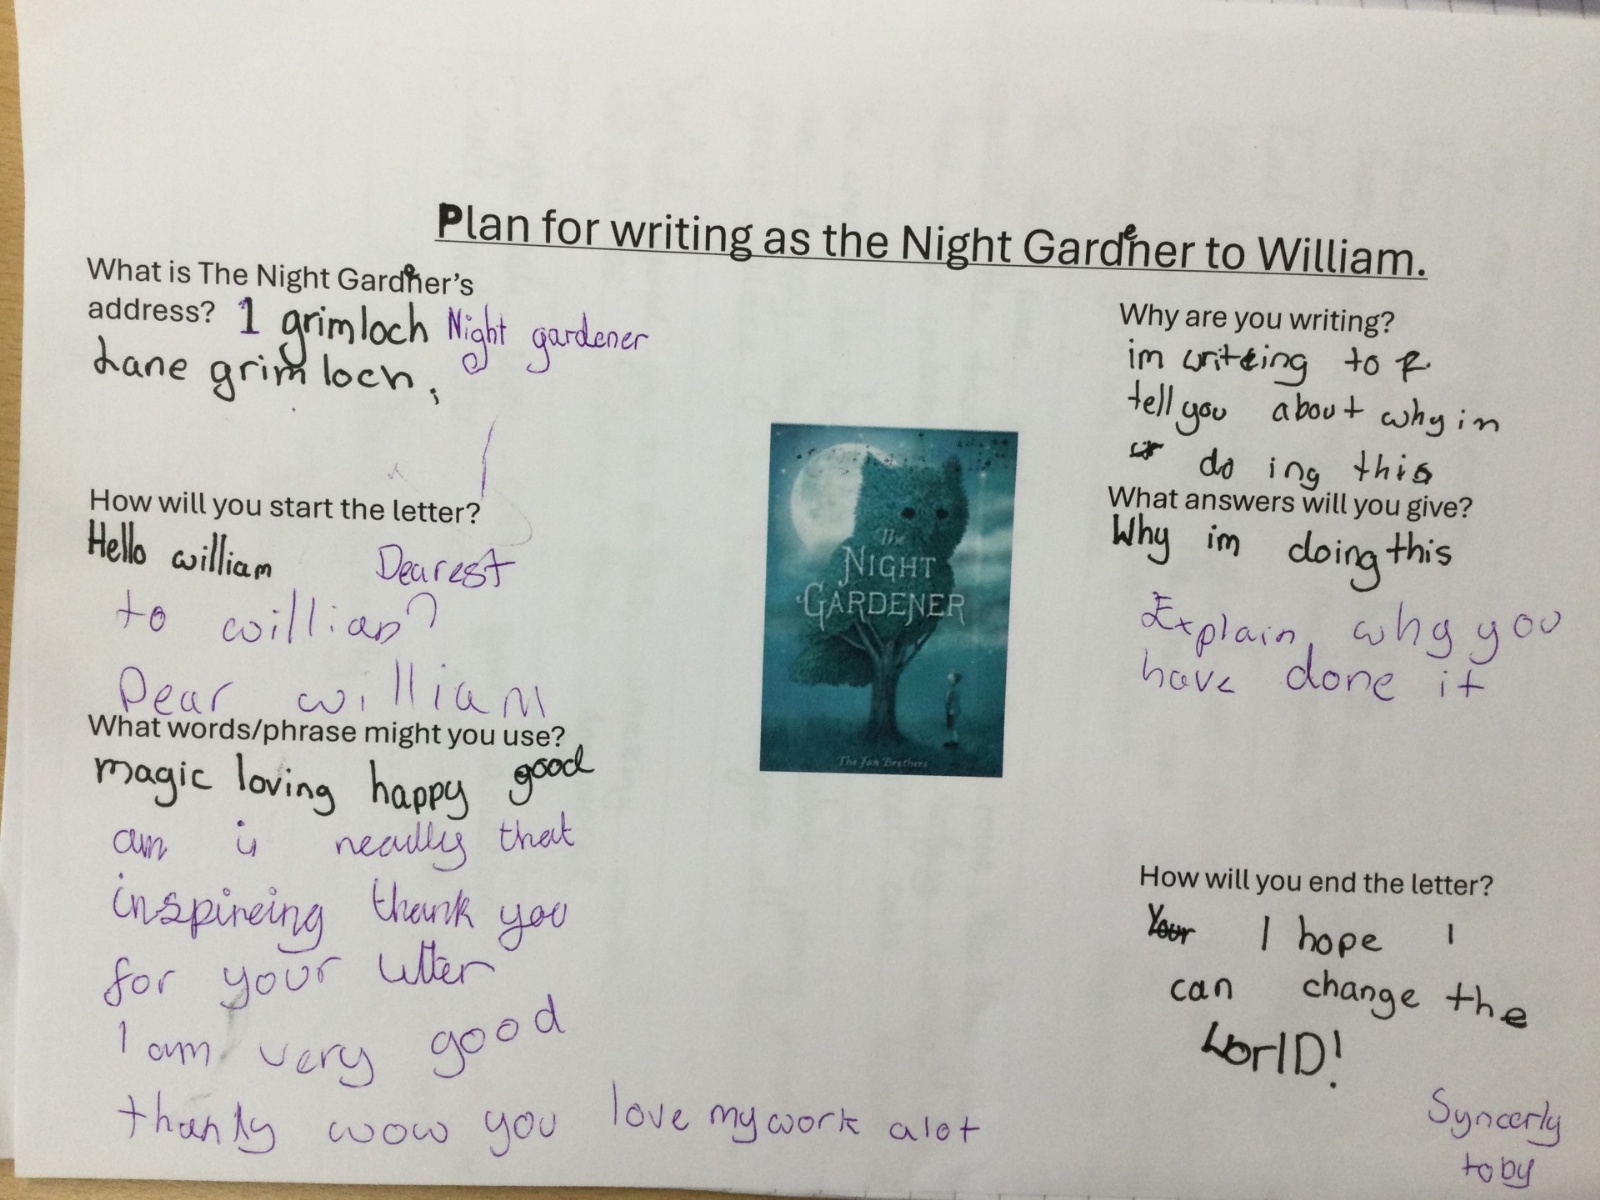 Plan for writing as the Night Gardener to William.
What is The Night Gardener's
address? 1 grimloch Night gardener
Lane grimloch,
How will you start the letter?
Hello william Dearest
to william?
Dear william
What words/phrase might you use?
magic loving happy good
an is neadly that
inspireing thank you
for your letter
I am very good
thanks wow you love my work alot
The
NIGHT
GARDENER
The Fan Brothers
Why are you writing?
im writeing to
tell you about why im
doing this
What answers will you give?
Why im doing this
Explain why you
have done it
How will you end the letter?
Your I hope I
can change the
WorlD!
Syncerly
toby